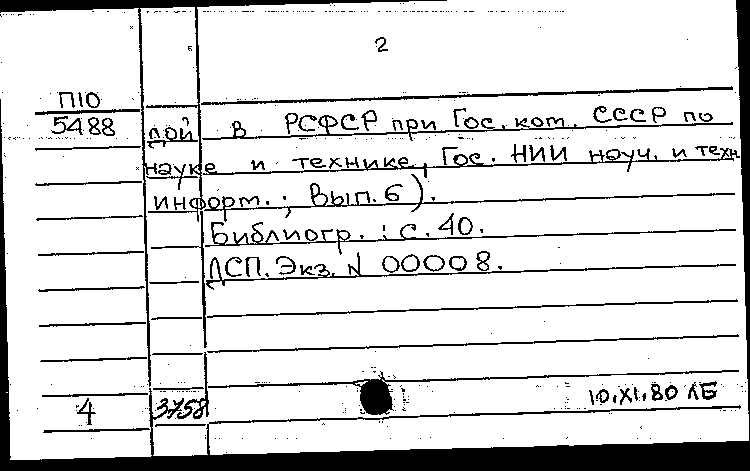 2
П10
5488 дой в РСФСР при Гос. ком. СССР по
науке и технике, Гос. НИИ науч. и техн.
информ.; Вып. 6).
Библиогр.: с. 40.
ДСП. Экз. N 00008.
4 3758 10.XI.80 ЛБ